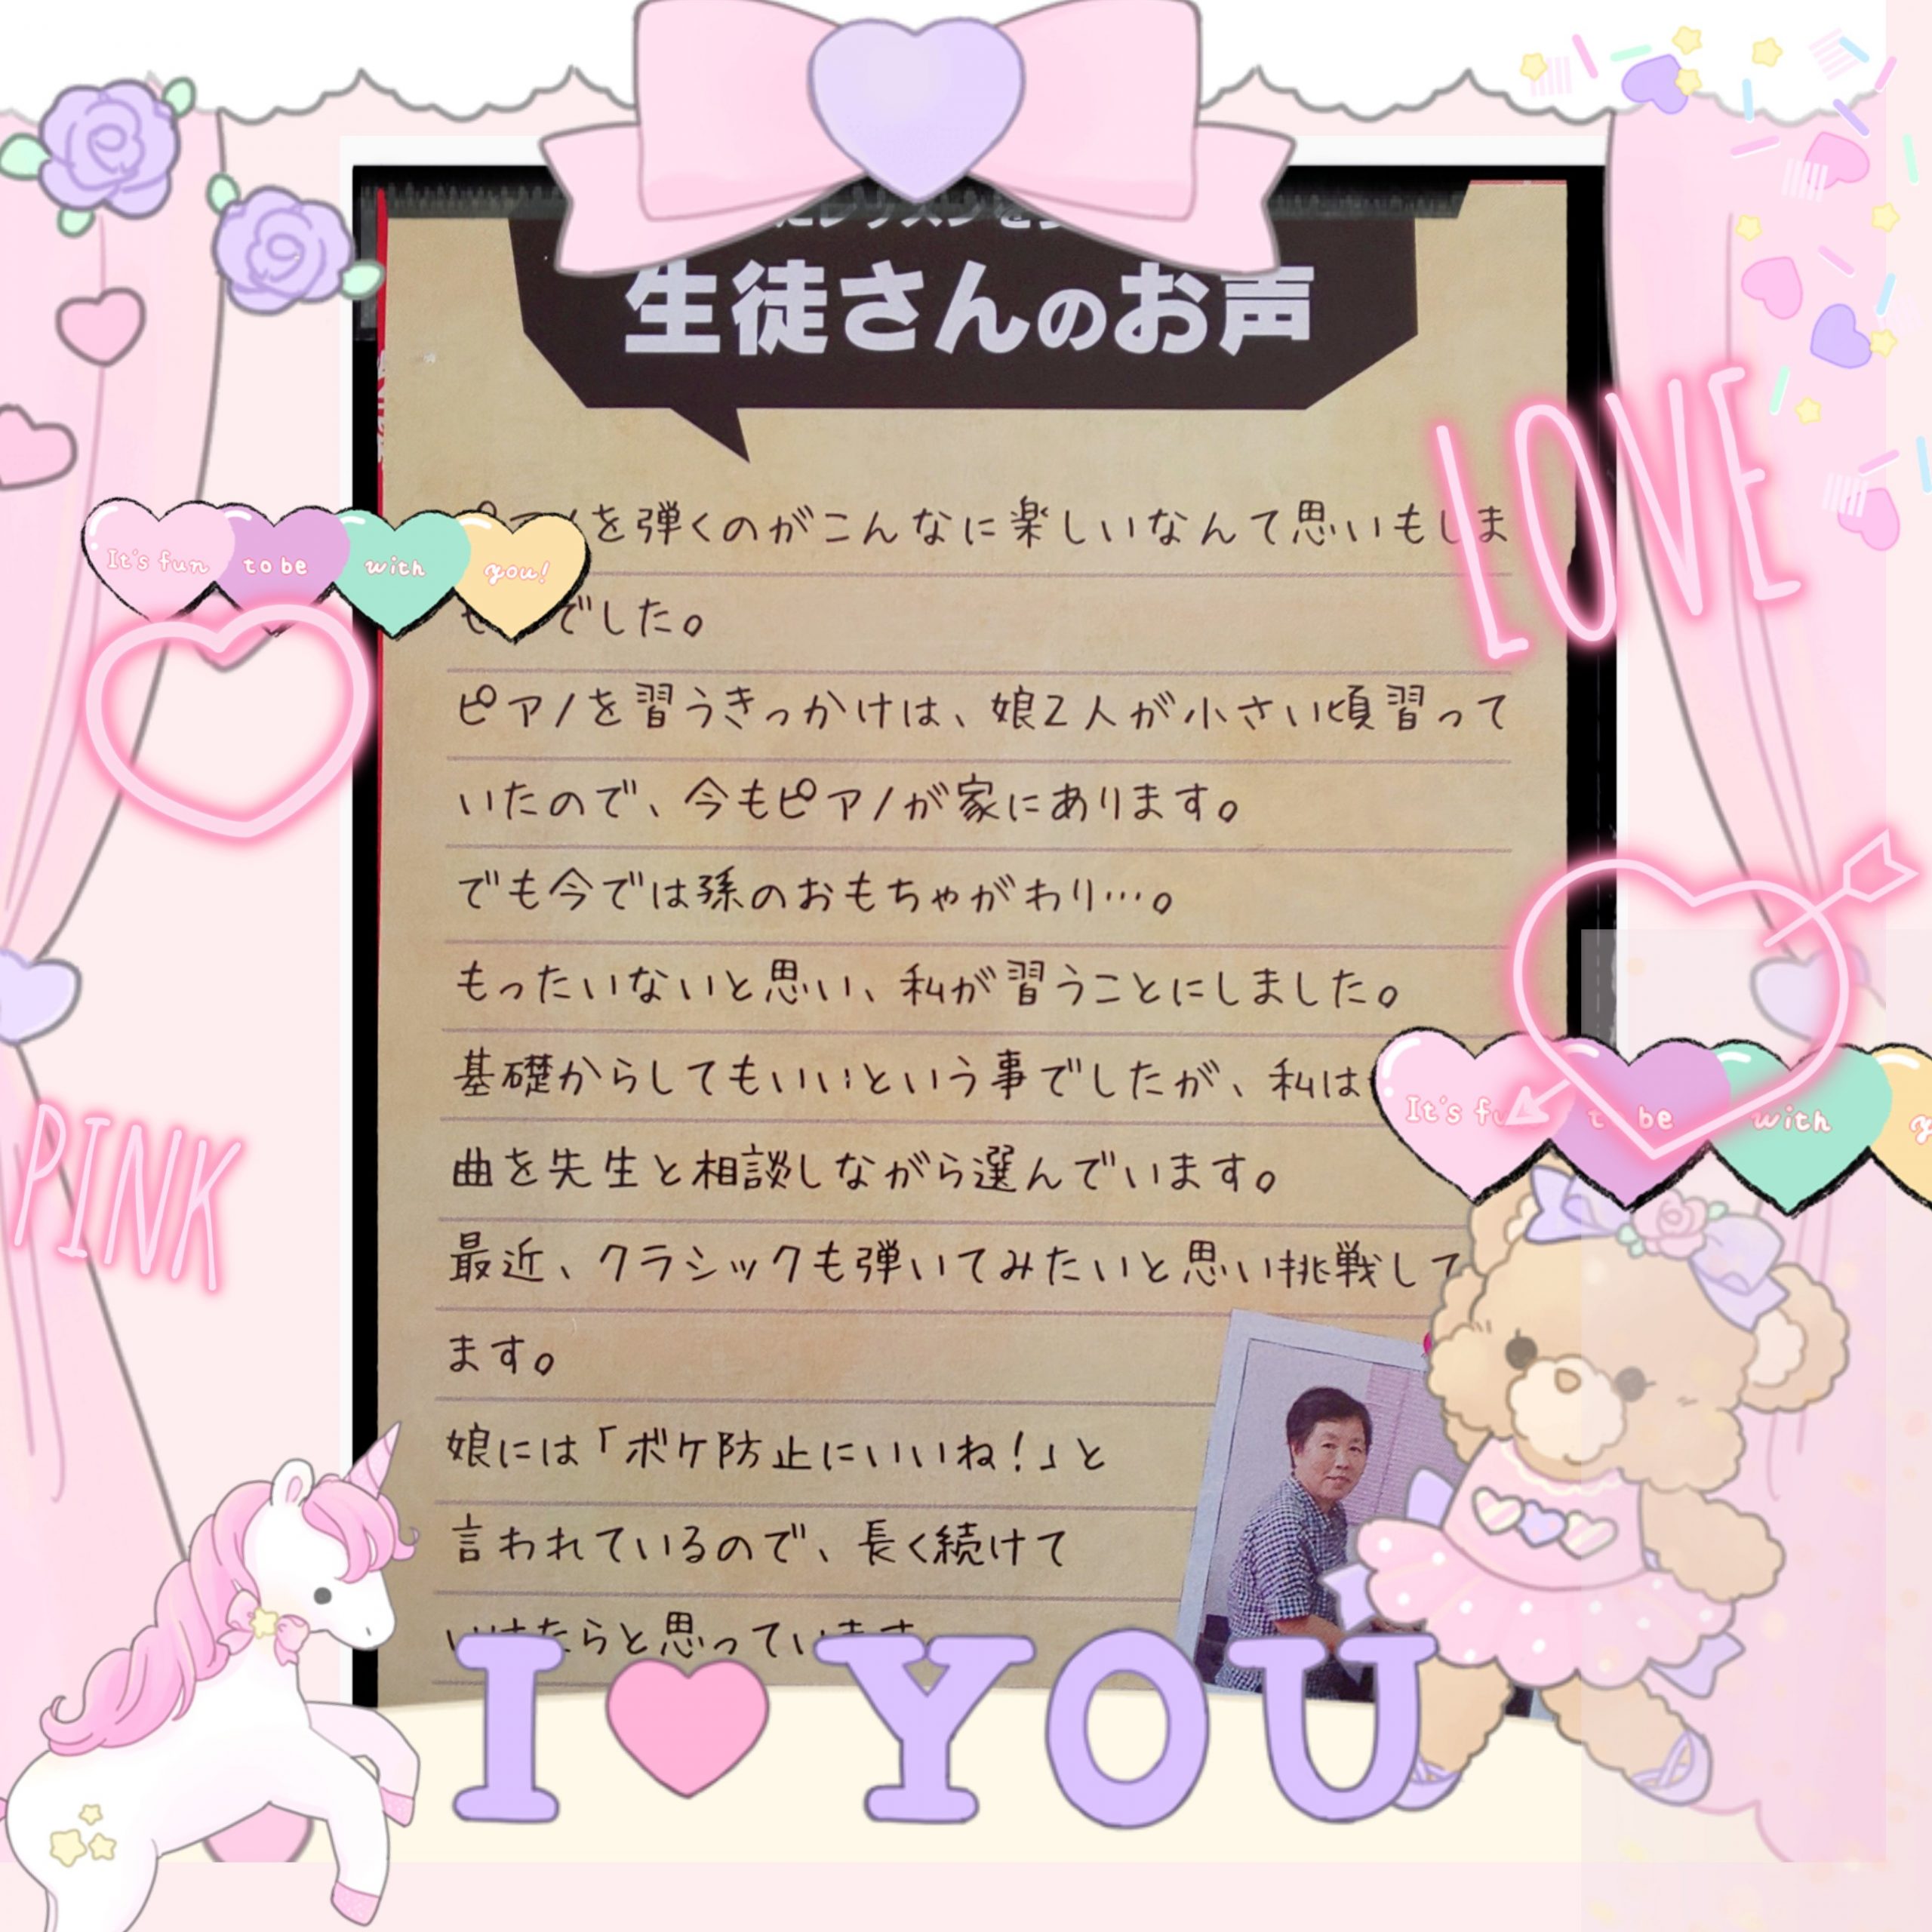 生徒さんのお声
を弾くのがこんなに楽しいなんて思いもしま
でした。
ピアノを習うきっかけは、娘2人が小さい頃習って
いたので、今もピアノが家にあります。
でも今では孫のおもちゃがわり…。
もったいないと思い、私が習うことにしました。
基礎からしてもいいという事でしたが、私は
曲を先生と相談しながら選んでいます。
最近、クラシックも弾いてみたいと思い挑戦して
ます。
娘には「ボケ防止にいいね!」と
言われているので、長く続けて
たらと思ってい
LOVE
It's fun to be with you!
PINK
to be with
I YOU